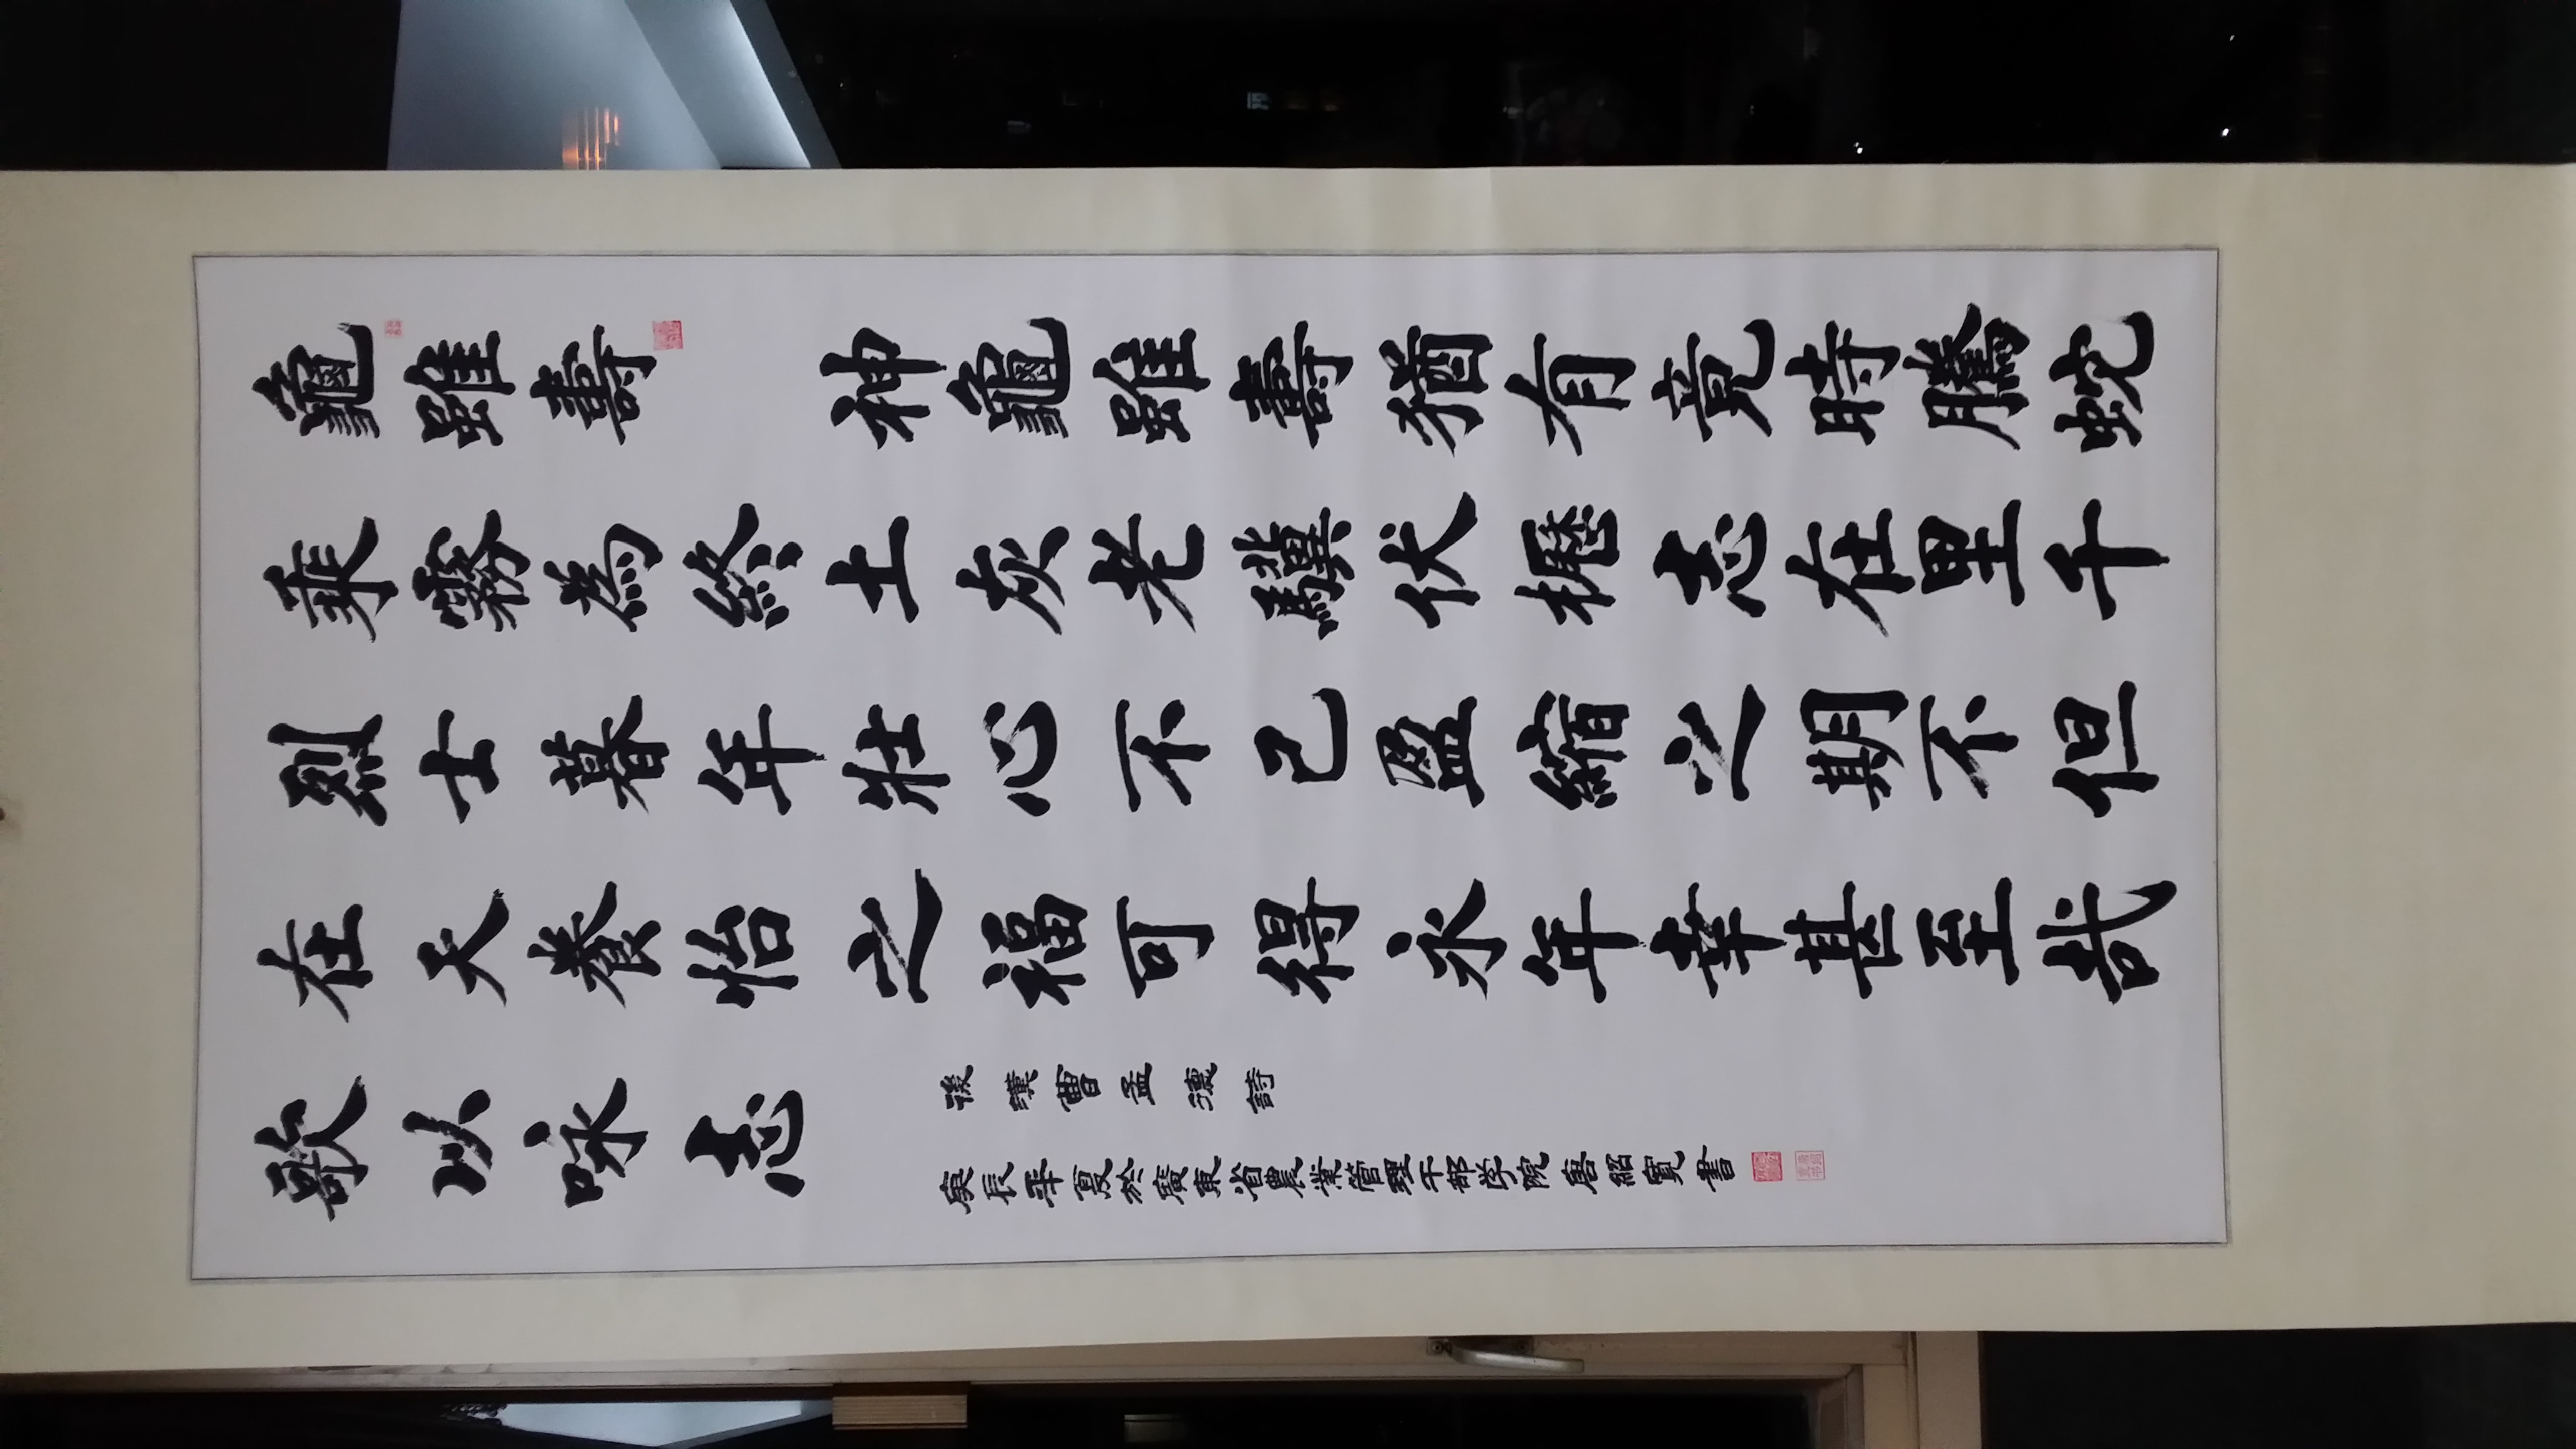 龜雖壽 神龜雖壽猶有竟時騰蛇
乘霧為終土灰老驥伏櫪志在里千
烈士暮年壯心不已盈縮之期不但
在天養怡之福可得永年幸甚至哉
歌以咏志
後漢曹孟德詩
庚辰年夏於廣東省農業管理干部学院唐紹寬書